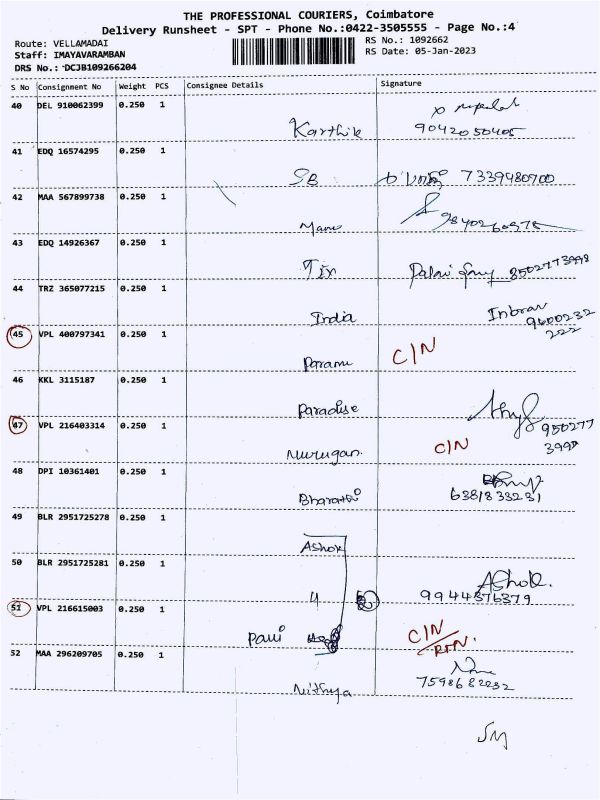 THE PROFESSIONAL COURIERS, Coimbatore
Delivery Runsheet - SPT - Phone No.:0422-3505555 - Page No.:4
Route: VELLAMADAI
RS No.: 1092662
Staff: IMAYAVARAMBAN
RS Date: 05-Jan-2023
DRS No.: DCJB109266204
S No Consignment No Weight PCS Consignee Details Signature
40 DEL 910062399 0.250 1
Karthik 9042050405
41 EDQ 16574295 0.250 1
SB 7339480700
42 MAA 567899738 0.250 1
Manu 9840260378
43 EDQ 14926367 0.250 1
Tir Palani 9502773998
44 TRZ 365077215 0.250 1
India 9600232
222
45 VPL 400797341 0.250 1
Paramu C/N
46 KKL 3115187 0.250 1
Paradise
47 VPL 216403314 0.250 1 950277
3998
Murugan C/N
48 DPI 10361401 0.250 1
Bharathi 6381833231
49 BLR 2951725278 0.250 1
Ashok
50 BLR 2951725281 0.250 1
Ashok.
9944376379
51 VPL 216615003 0.250 1
C/N
RTN.
52 MAA 296209705 0.250 1
Nithya 7598682032